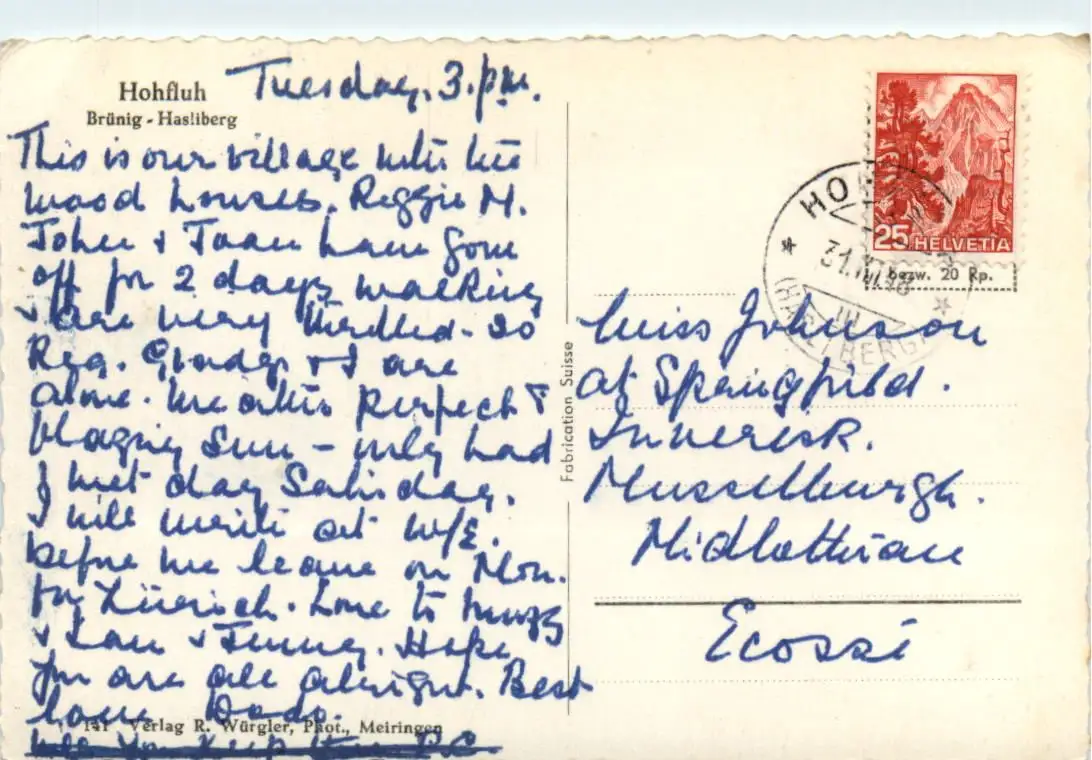 Hohfluh
Brünig - Hasliberg
Tuesday. 3. pm.
This is our village with the
wood houses. Reggie M.
John & Joan have gone
off for 2 days walking
& are very thrilled - so
Reg. Gladys & I are
alone. Weather perfect &
blazing sun - only had
1 wet day Saturday.
I will write at W/E.
before we leave on Mon.
for Zürich. Love to
& Ian & Jenny. Hope
you are all alright. Best
love Dodo.
141 Verlag R. Würgler, Phot., Meiringen
will you keep P.C.
Fabrication Suisse
25 HELVETIA
bezw. 20 Rp.
(HASLIBERG)
Miss Johnson
at Springfield.
Inveresk.
Musselburgh.
Midlothian
Ecosse